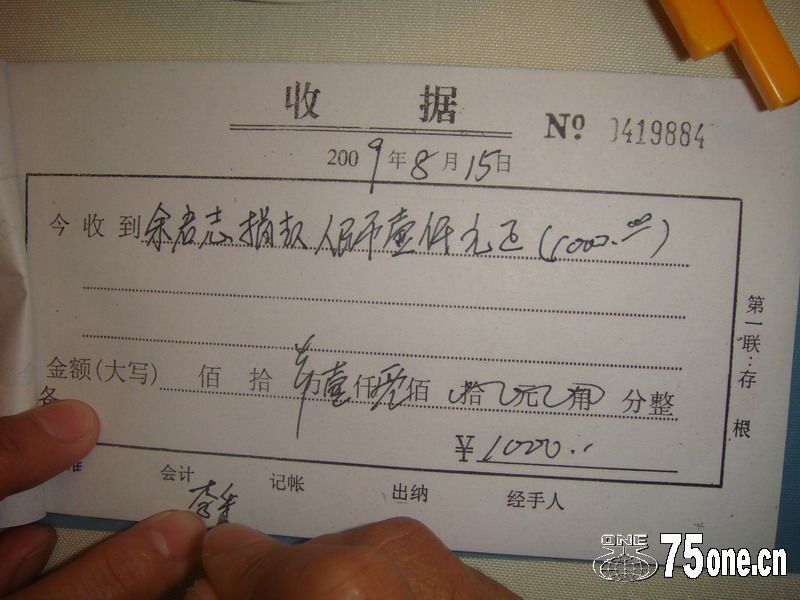 收 据
Nº 0419884
2009年8月15日
今收到余名志捐款人民币壹仟元正(1000.00)
金额(大写) 佰 拾 万壹仟零佰 拾 元 角 分整
¥1000..
会计 记帐 出纳 经手人
李
第一联:存根
ONE 75one.cn